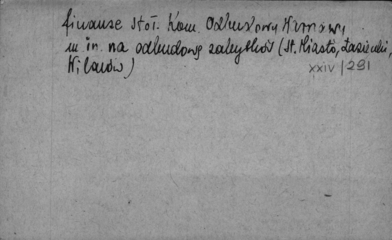 finanse Stoł. Kom. Odbudowy Warszawy
m in. na odbudowę zabytków (St. Miasto, Łazienki,
Wilanów)
XXIV/291